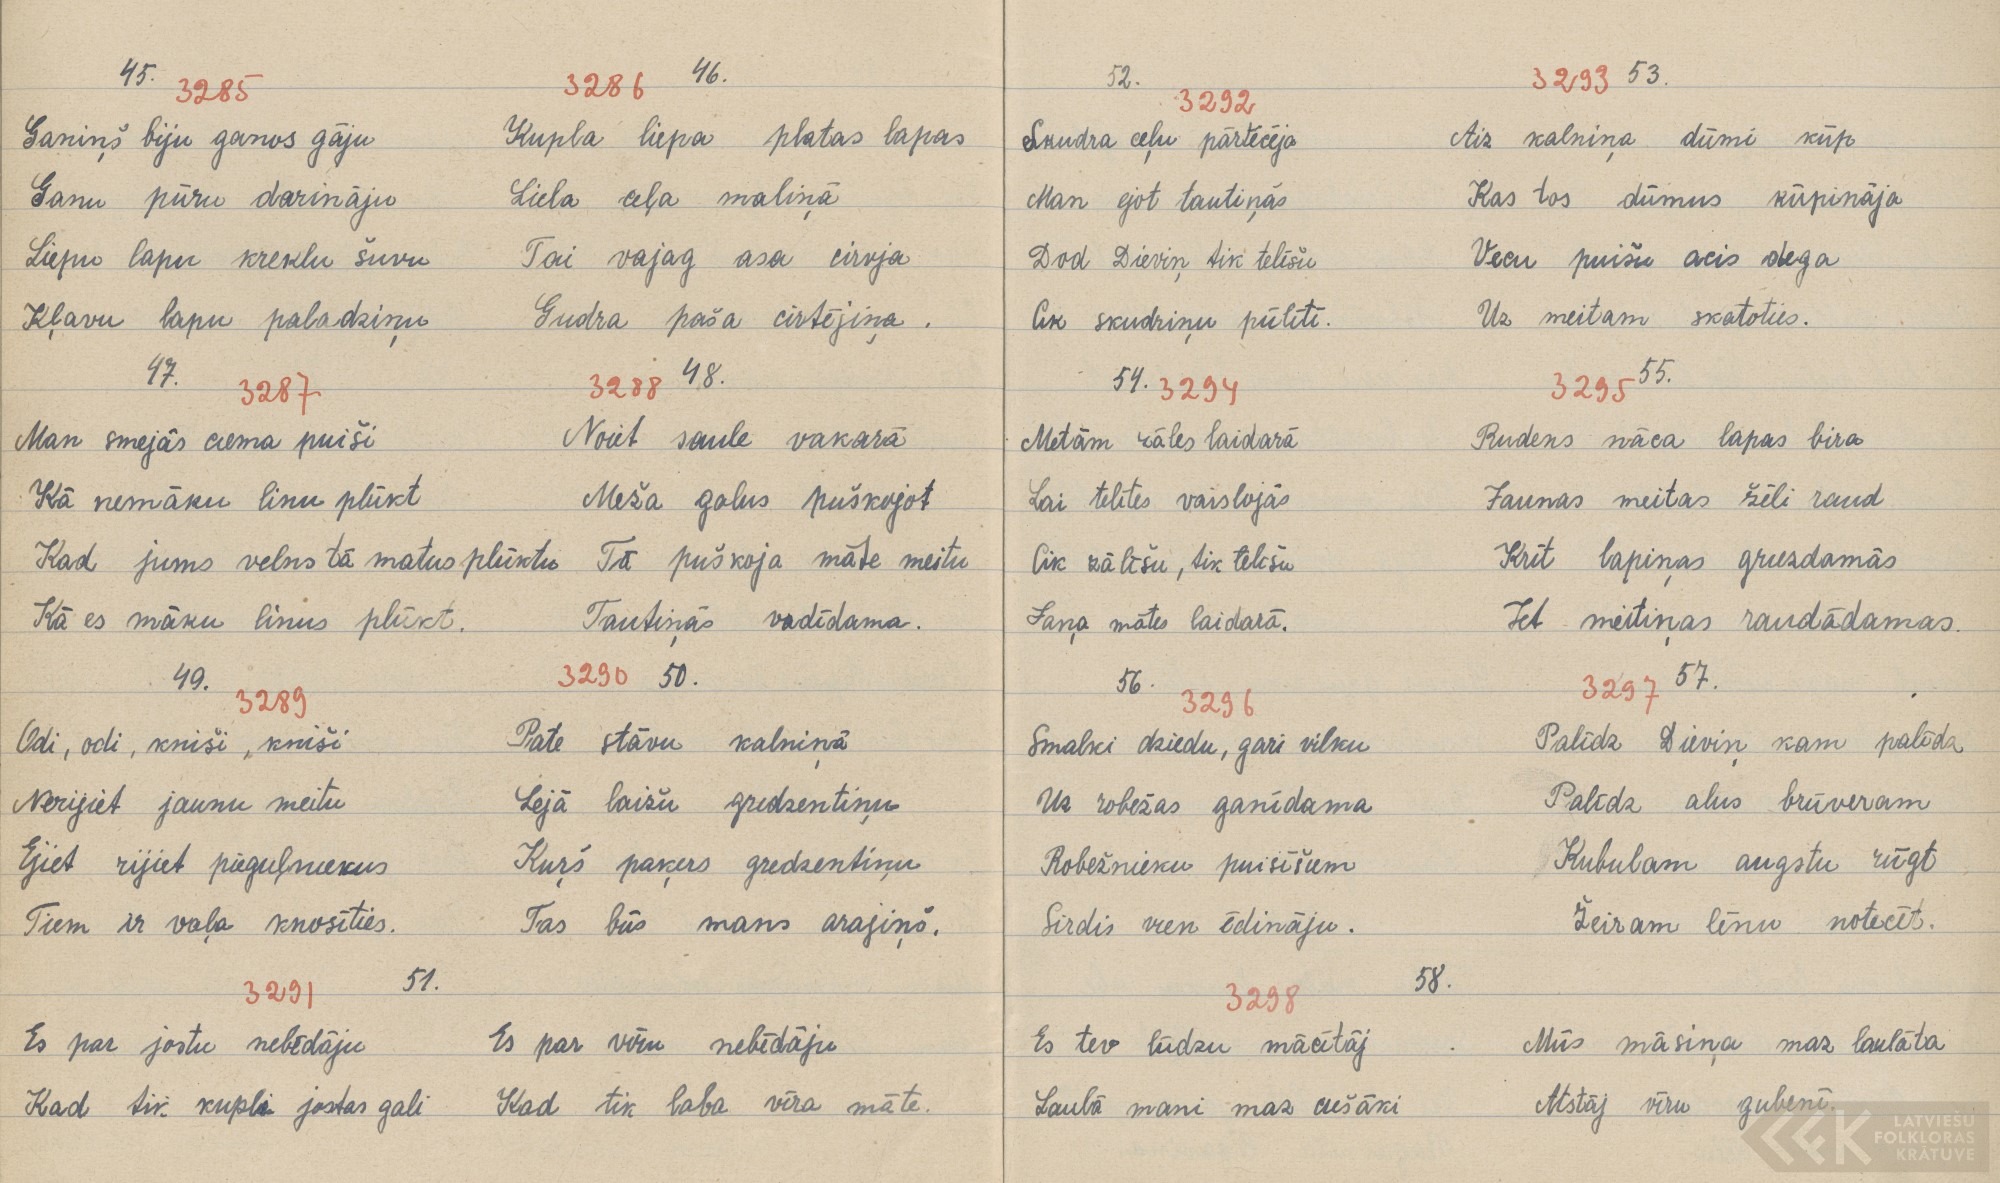 45.
3285
Ganiņš biju ganos gāju
Ganu pūru darināju
Liepu lapu kreklu šuvu
Kļavu lapu paladziņu
3286
46.
Kupla liepa platas lapas
Liela ceļa maliņā
Tai vajag asa cirvja
Gudra paša cirtējiņa.
47.
3287
Man smejās ciema puiši
Kā nemāku linu plūkt
Kad jums velns tā matus plūktu
Kā es māku linus plūkt.
3288
48.
Noiet saule vakarā
Meža galus puškojot
Tā puškoja māte meitu
Tautiņās vadīdama.
49.
3289
Odi, odi, kniši, kniši
Nerijiet jaunu meitu
Ejiet rijiet pieguļniekus
Tiem ir vaļa knosīties.
3290
50.
Pate stāvu kalniņā
Lejā laižu gredzentiņu
Kuŗš paķers gredzentiņu
Tas būs mans arajiņš.
3291
51.
Es par jostu nebēdāju
Kad tik kupli jostas gali
Es par vīru nebēdāju
Kad tik laba vīra māte.
52.
3292
Skudra ceļu pārtecēja
Man ejot tautiņās
Dod Dieviņ tik telīšu
Cik skudriņu pūlītī.
3293
53.
Aiz kalniņa dūmi kūp
Kas tos dūmus kūpināja
Vecu puišu acis dega
Uz meitam skatoties.
54.
3294
Metām zāles laidarā
Lai telītes vaislojās
Cik zālīšu, tik telīšu
Jaņa mātes laidarā.
3295
55.
Rudens nāca lapas bira
Jaunas meitas žēli raud
Krīt lapiņas griezdamās
Iet meitiņas raudādamas.
56.
3296
Smalki dziedu, gari vilku
Uz robežas ganīdama
Robežnieku puisīšiem
Sirdis vien ēdināju.
3297
57.
Palīdz Dieviņ kam palīdz
Palīdz alus brūveram
Kubulam augstu rūgt
Žeiram lēnu notecēt.
3298
58.
Es tev lūdzu mācītāj
Laulā mani maz ciešāki
Mūs māsiņa maz laulāta
Atstāj vīru gubenī.
LATVIEŠU
FOLKLORAS
KRĀTUVE